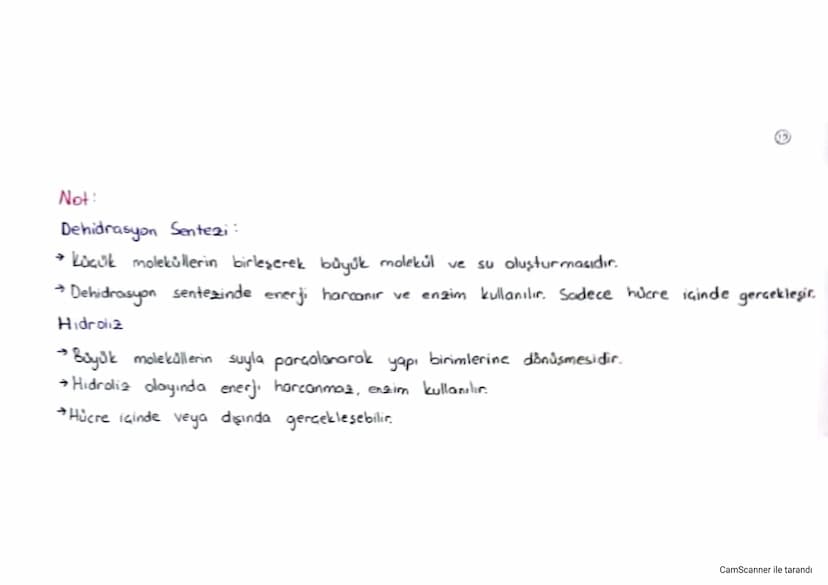 13
Not:
Dehidrasyon Sentezi:
→ Küçük moleküllerin birleşerek büyük molekül ve su oluşturmasıdır.
→ Dehidrasyon sentezinde enerji harcanır ve enzim kullanılır. Sadece hücre içinde gerçekleşir.
Hidroliz
→ Büyük moleküllerin suyla parçalanarak yapı birimlerine dönüşmesidir.
→ Hidroliz olayında enerji harcanmaz, enzim kullanılır.
→ Hücre içinde veya dışında gerçekleşebilir.
CamScanner ile tarandı